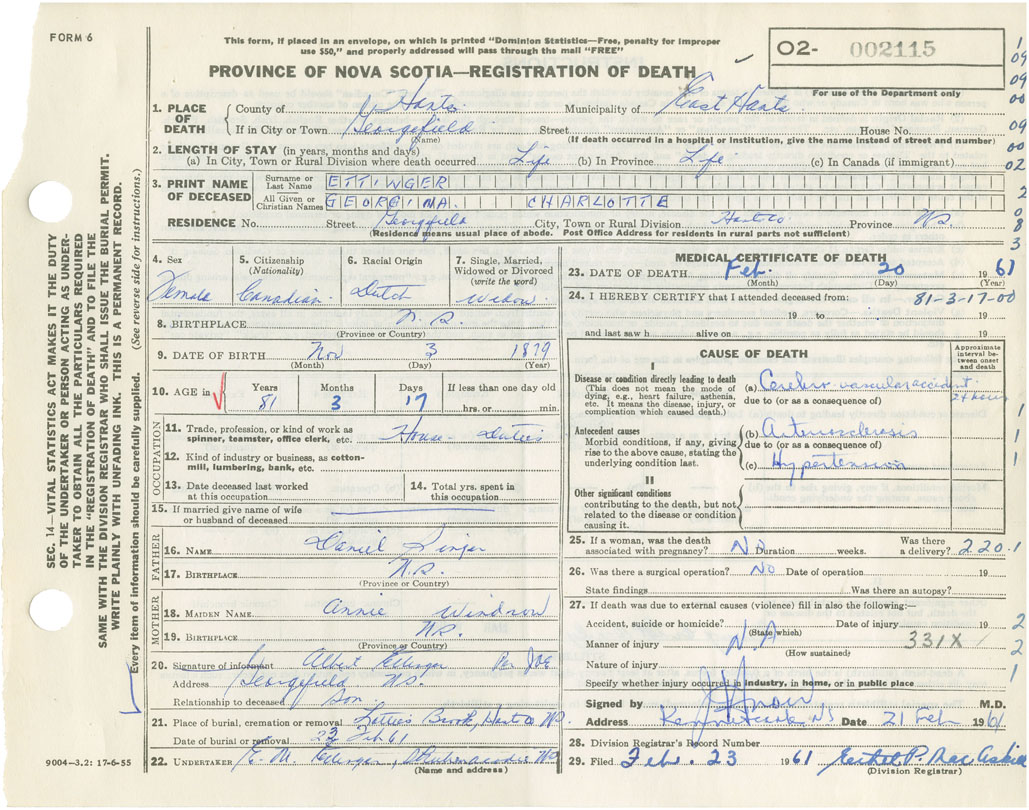 FORM 6
This form, if placed in an envelope, on which is printed "Dominion Statistics—Free, penalty for improper
use $50," and properly addressed will pass through the mail "FREE"
PROVINCE OF NOVA SCOTIA—REGISTRATION OF DEATH
O2- 002115
For use of the Department only
1. PLACE OF DEATH
County of Hants Municipality of East Hants
If in City or Town Georgefield Street House No.
(Name) (If death occurred in a hospital or institution, give the name instead of street and number)
2. LENGTH OF STAY (in years, months and days)
(a) In City, Town or Rural Division where death occurred Life (b) In Province Life (c) In Canada (if immigrant)
3. PRINT NAME OF DECEASED
Surname or Last Name ETTINGER
All Given or Christian Names GEORGINA. CHARLOTTE
RESIDENCE No. Street Georgefield City, Town or Rural Division Hants Co Province N.S.
(Residence means usual place of abode. Post Office Address for residents in rural parts not sufficient)
4. Sex Female
5. Citizenship (Nationality) Canadian
6. Racial Origin Dutch
7. Single, Married, Widowed or Divorced (write the word) Widow
8. BIRTHPLACE N.S.
(Province or Country)
9. DATE OF BIRTH Nov 3 1879
(Month) (Day) (Year)
10. AGE in Years Months Days If less than one day old
81 3 17 hrs. or min.
OCCUPATION
11. Trade, profession, or kind of work as spinner, teamster, office clerk, etc. House-Duties
12. Kind of industry or business, as cotton-mill, lumbering, bank, etc.
13. Date deceased last worked at this occupation
14. Total yrs. spent in this occupation
15. If married give name of wife or husband of deceased
FATHER
16. NAME Daniel
17. BIRTHPLACE N.S.
(Province or Country)
MOTHER
18. MAIDEN NAME Annie Windrow
19. BIRTHPLACE N.S.
(Province or Country)
20. Signature of informant Albert Ettinger Per
Address Georgefield N.S.
Relationship to deceased Son
21. Place of burial, cremation or removal Lattie's Brook, Hants Co N.S.
Date of burial or removal 23 Feb 61
22. UNDERTAKER E. M. Ettinger, NS
(Name and address)
9004—3.2: 17-6-55
MEDICAL CERTIFICATE OF DEATH
23. DATE OF DEATH Feb. 20 1961
(Month) (Day) (Year)
24. I HEREBY CERTIFY that I attended deceased from: 81-3-17-00
19 to 19
and last saw h alive on 19
CAUSE OF DEATH
Approximate interval between onset and death
I
Disease or condition directly leading to death
(This does not mean the mode of dying, e.g., heart failure, asthenia, etc. It means the disease, injury, or complication which caused death.)
(a) Cerebro-vascular accident 24 hours
due to (or as a consequence of)
Antecedent causes
Morbid conditions, if any, giving rise to the above cause, stating the underlying condition last.
(b) Arteriosclerosis
due to (or as a consequence of)
(c) Hypertension
II
Other significant conditions
contributing to the death, but not related to the disease or condition causing it.
25. If a woman, was the death associated with pregnancy? No Duration weeks. Was there a delivery? 220.1
26. Was there a surgical operation? No Date of operation 19
State findings Was there an autopsy?
27. If death was due to external causes (violence) fill in also the following:—
Accident, suicide or homicide? Date of injury 19
(State which)
Manner of injury N.A 331X
(How sustained)
Nature of injury
Specify whether injury occurred in industry, in home, or in public place
Signed by M.D.
Address Kennetcook NS Date 21 Feb 1961
28. Division Registrar's Record Number
29. Filed Feb. 23 1961 Ethel P. MacAskill
(Division Registrar)
SEC. 14—VITAL STATISTICS ACT MAKES IT THE DUTY
OF THE UNDERTAKER OR PERSON ACTING AS UNDER-
TAKER TO OBTAIN ALL THE PARTICULARS REQUIRED
IN THE "REGISTRATION OF DEATH" AND TO FILE THE
SAME WITH THE DIVISION REGISTRAR WHO SHALL ISSUE THE BURIAL PERMIT.
WRITE PLAINLY WITH UNFADING INK. THIS IS A PERMANENT RECORD.
Every item of information should be carefully supplied. (See reverse side for instructions.)
1
09
09
00
09
00
02
2
0
8
3
1
1
1
1
2
2
1